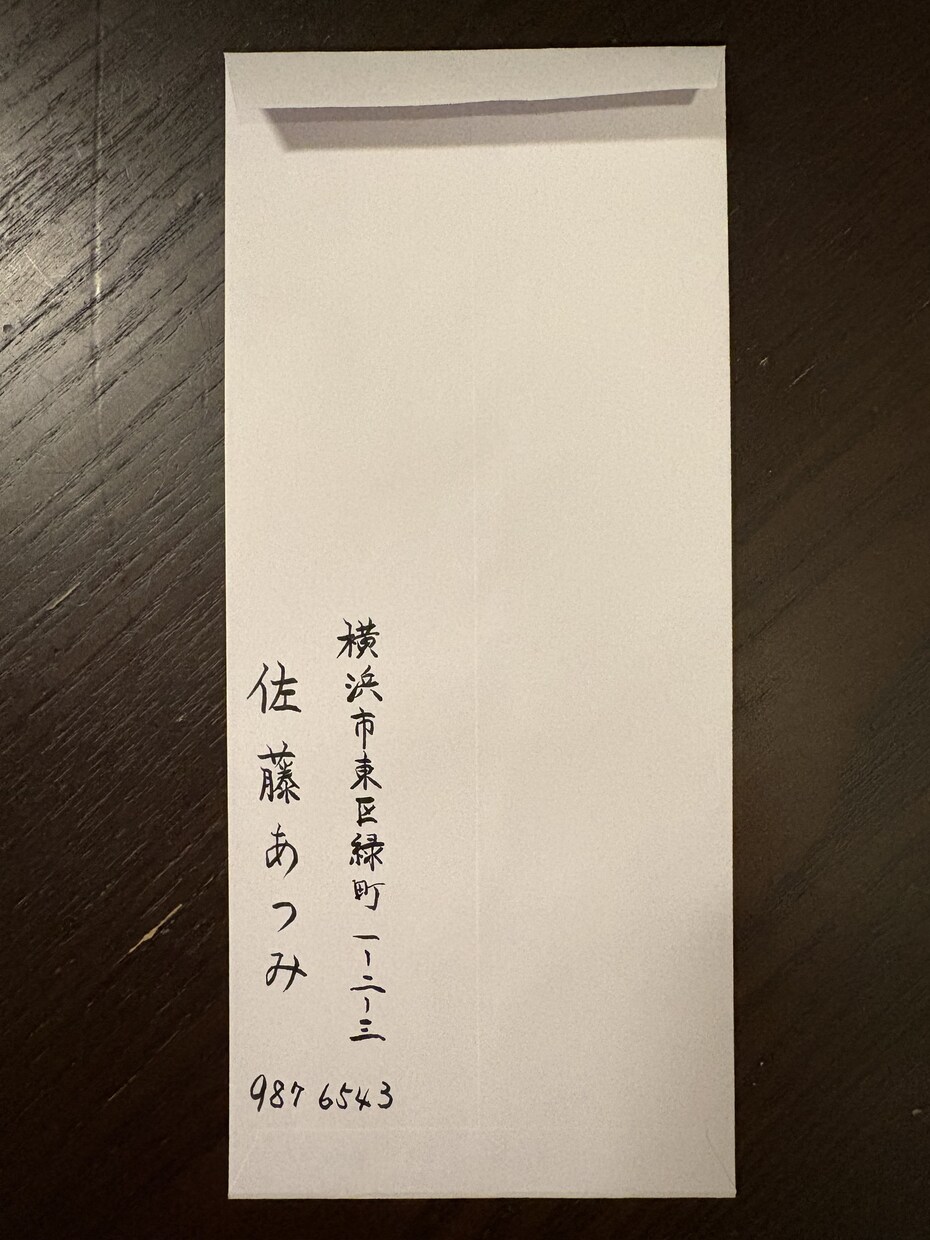 横浜市東区緑町一-二-三
佐藤あつみ
987 6543